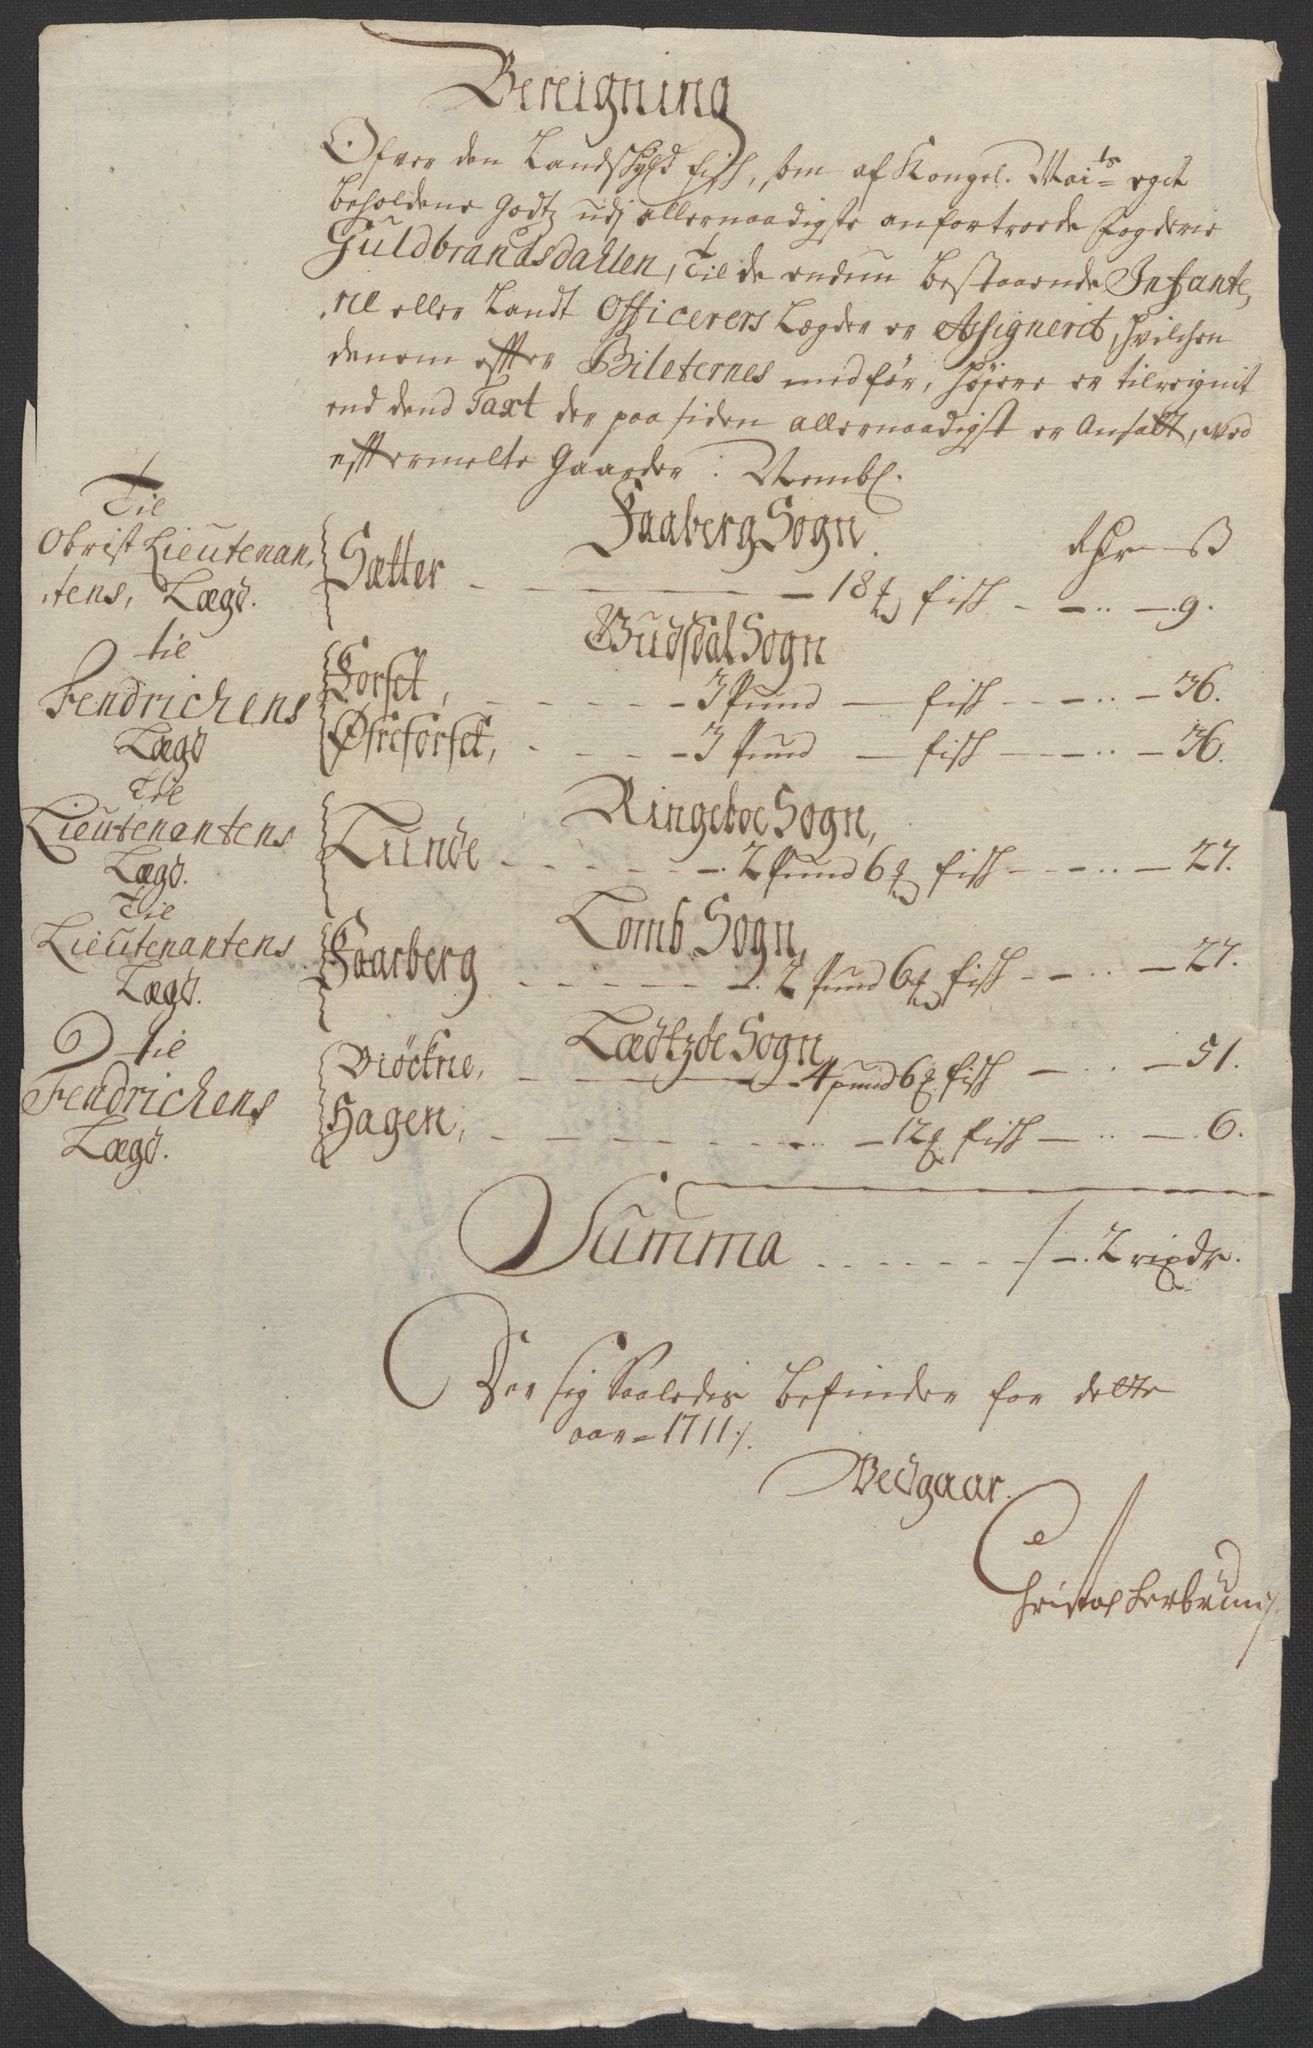 Bereigning
Ofver den Landskyld fisk, som af Kongel. Mai:ts eget
beholdene Godtz udj allernaadigste anfortroede fogderie
Guldbrandsdahlen, Til de endnu bestaaende Infante,
,rie eller Landt Officerers Lægder er Assignerit, hvilchen
denem effter Bileternes medför, höjere er tilreignit
end dend Taxt der paa siden allernaadigst er Ansatt, ved
effermelte Gaarder : Nembl.
Faaberg Sogn.
Rdr ß
Til
Obrist Lieutenan,
,tens, Lægd.
Sætter - 18 ℔ fisk - - .. - 9.
Budsdal Sogn
til
Fendrichens
Lægd
Forset, - 3 Pund - fisk - - .. - 36.
Øfreforset, - 3 Pund - fisk - - .. - 36.
Ringeboe Sogn,
Til
Lieutenantens
Lægd.
Lunde - 2 Pund 6 ℔ fisk - - .. - 27.
Lomb Sogn,
Til
Lieutenantens
Lægd.
Faarberg - 2 Pund 6 ℔ fisk - - .. - 27.
Lædtzøe Sogn
til
Fendrichens
Lægd.
Biöckne, - 4 pund 6 ℔ fisk - .. - 51.
Hagen, - 12 ℔ fisk - .. - 6.
Summa . . . . . . /-. 2 rixdr.
Der sig Saaledis befinder for dette
aar = 1711 ⁒.
Vedgaar.
Christoph Lerbrun